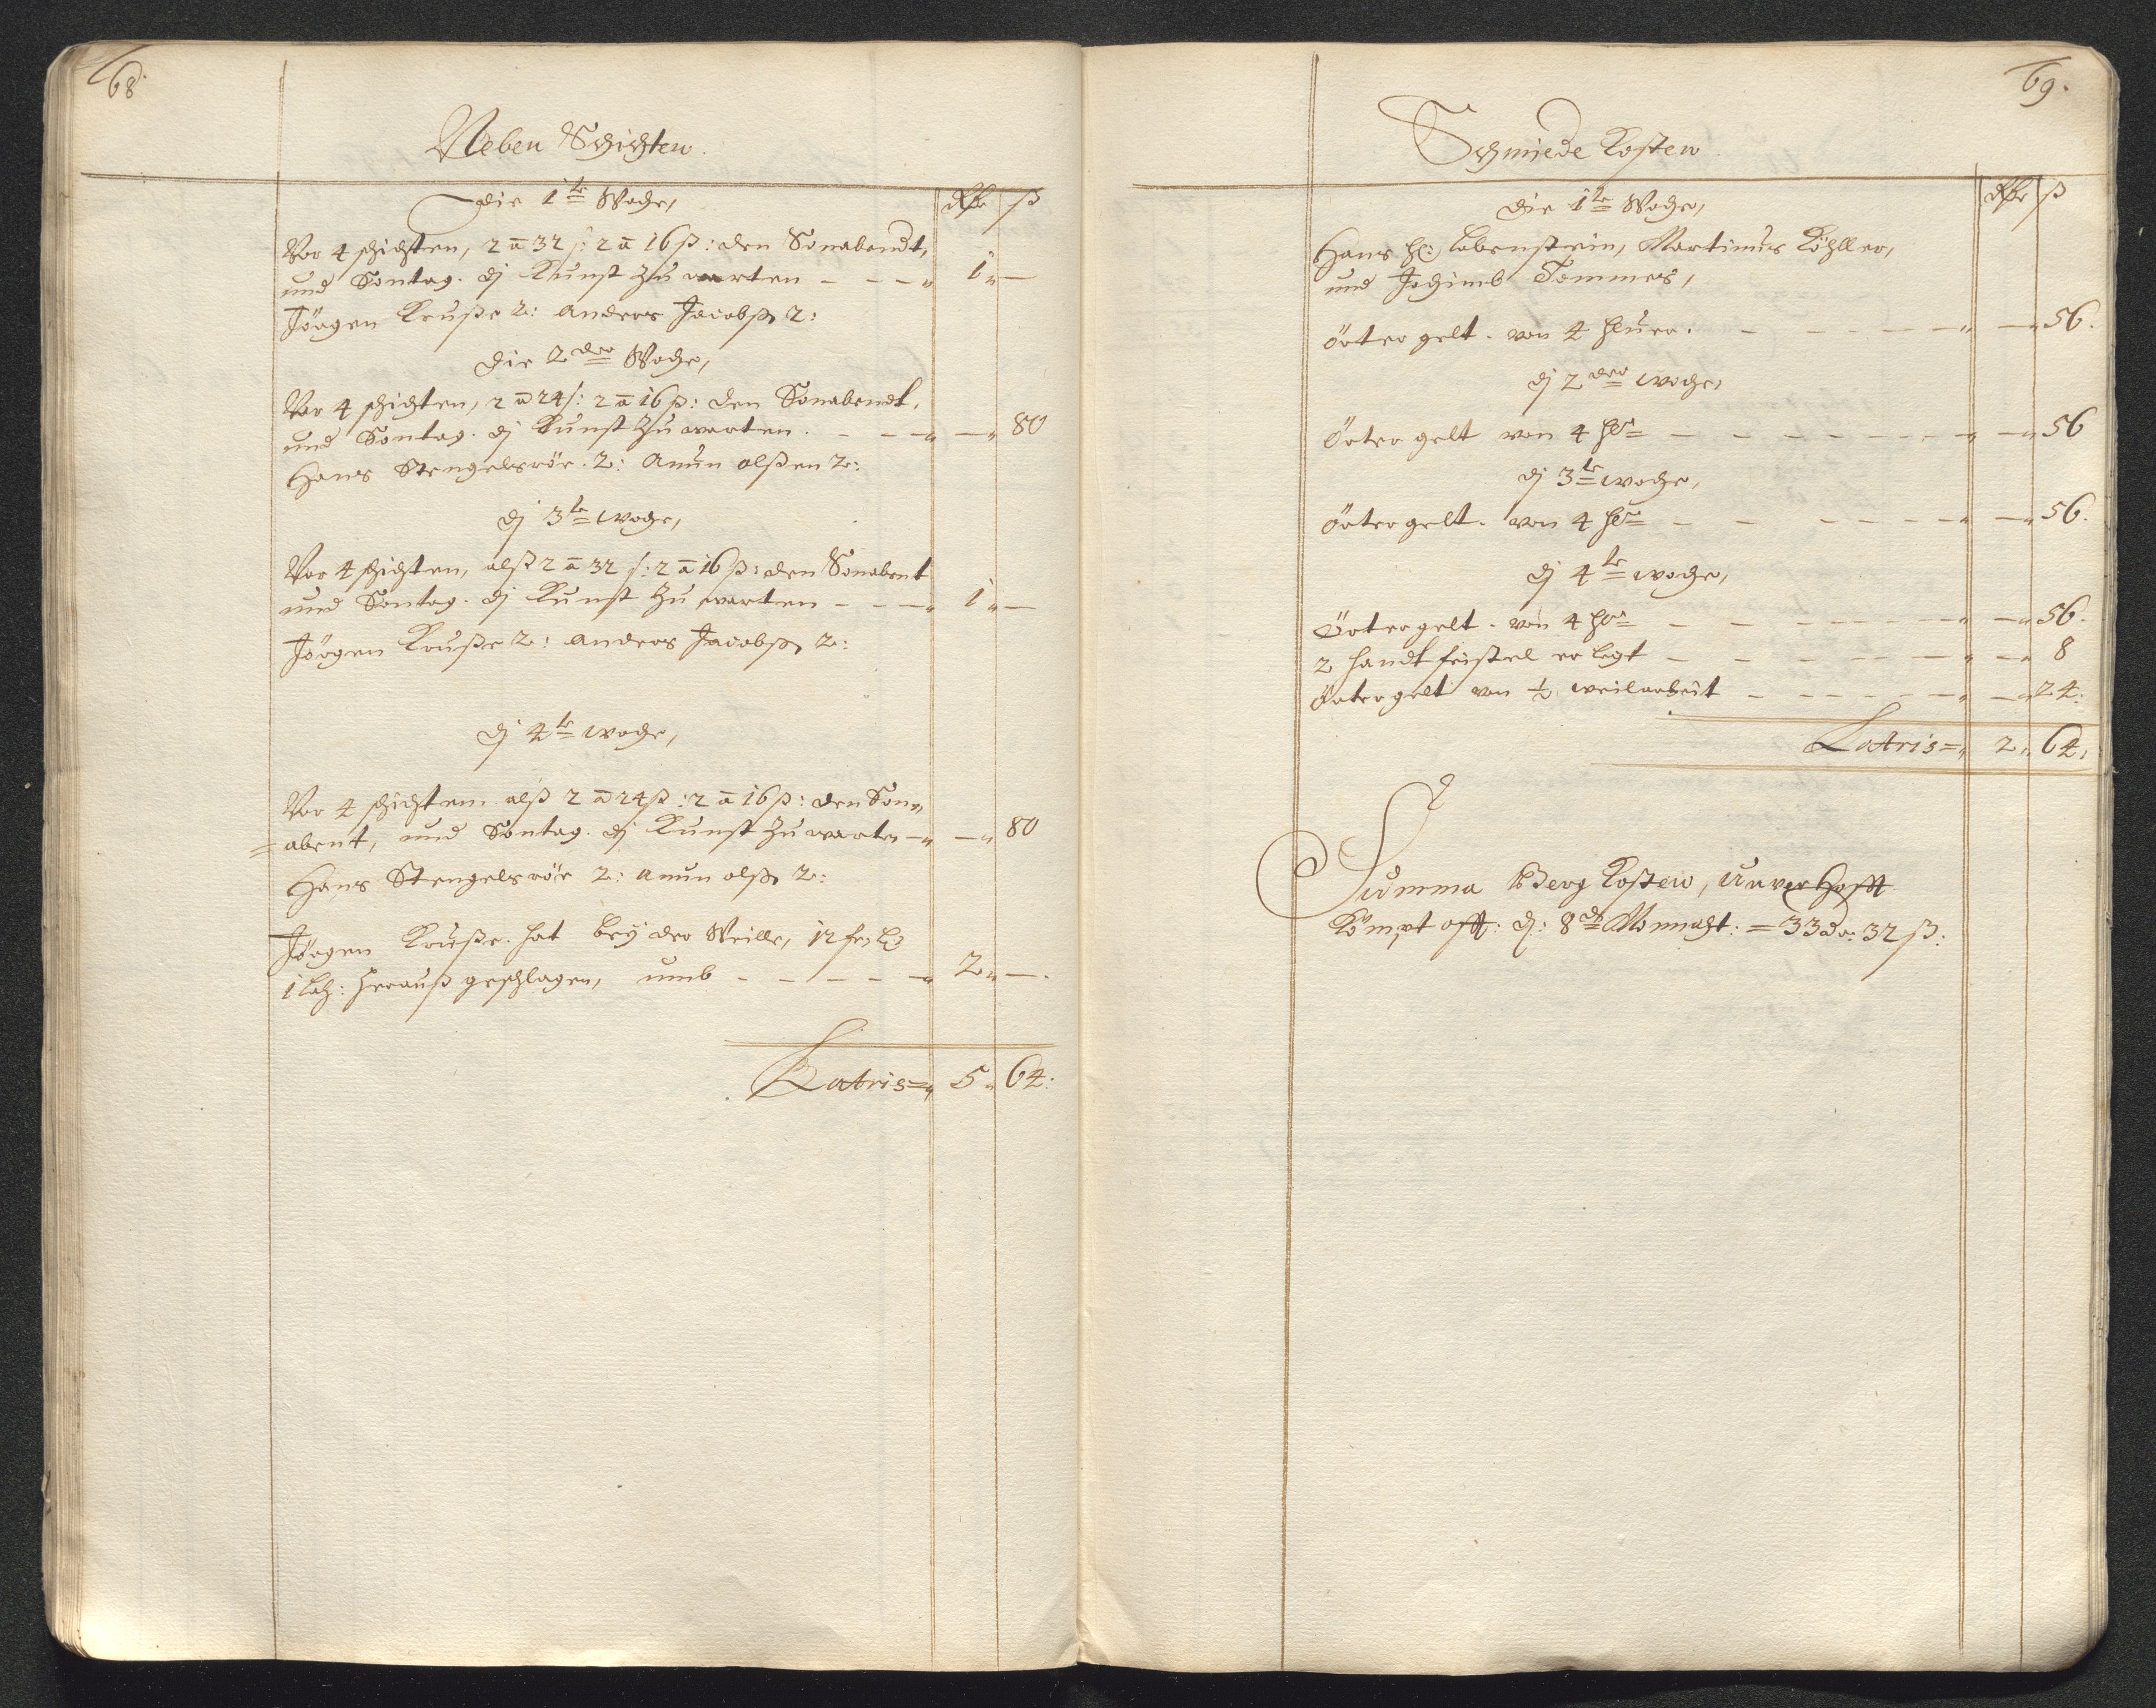 68.
Neben Schichten.
Die 1te Woche,
Rdr ß
Vor 4 schichten, 2 a 32 ß: 2 a 16 ß: den Sonabendt,
und Sontag. dj Kunst zu warten - - - 1 " -
Jörgen Krusse 2: Anders Jacobß 2:
Die 2der Woche,
Vor 4 schichten, 2 a 24 ß: 2 a 16 ß: den Sonabendt,
und Sontag. dj Kunst zu warten. - - - " - " 80
Hans Stengelsröe. 2: Amun olßen 2:
dj 3te woche,
Vor 4 schichten, alß 2 a 32 ß: 2 a 16 ß: den Sonabent
und Sontag. dj Kunst zu warten - - - " 1 " -
Jörgen Krusse 2: Anders Jacobß 2:
dj 4te woche,
Vor 4 schichten alß 2 a 24 ß: 2 a 16 ß: den Son=
=abent, und Sontag. dj Kunst zu warten - " - " 80
Hans Stengelsröe 2: Amun olß 2:
Jörgen Krusse. hat bey der Weille, 12
1 lach: herauß geschlagen, umb - - - - - " 2 " -.
Latris = " 5 " 64:
69.
Schmiede Kosten
Die 1te Woche,
Rdr ß
Hans Lobenstein, Martinus Köhller,
und Jochimb Tommes,
örter gelt. von 4 heuer. - - - - - - " - " 56.
dj 2der woche,
Örter gelt von 4 - - - - - - - - " - " 56
dj 3te woche,
örter gelt. von 4 - - - - - - " - " 56.
dj 4te woche,
Örter gelt. von 4 - - - - - - " - " 56.
2 handt feistel er legt - - - - - - " - " 8
Örter gelt von ½ weilarbeit - - - - - - " - " 24:
Latris = " 2 " 64,
Summa Berg Kosten, Unverhofft
kömpt off: dj: 8de Monnacht: = 33 dr: 32 ß: